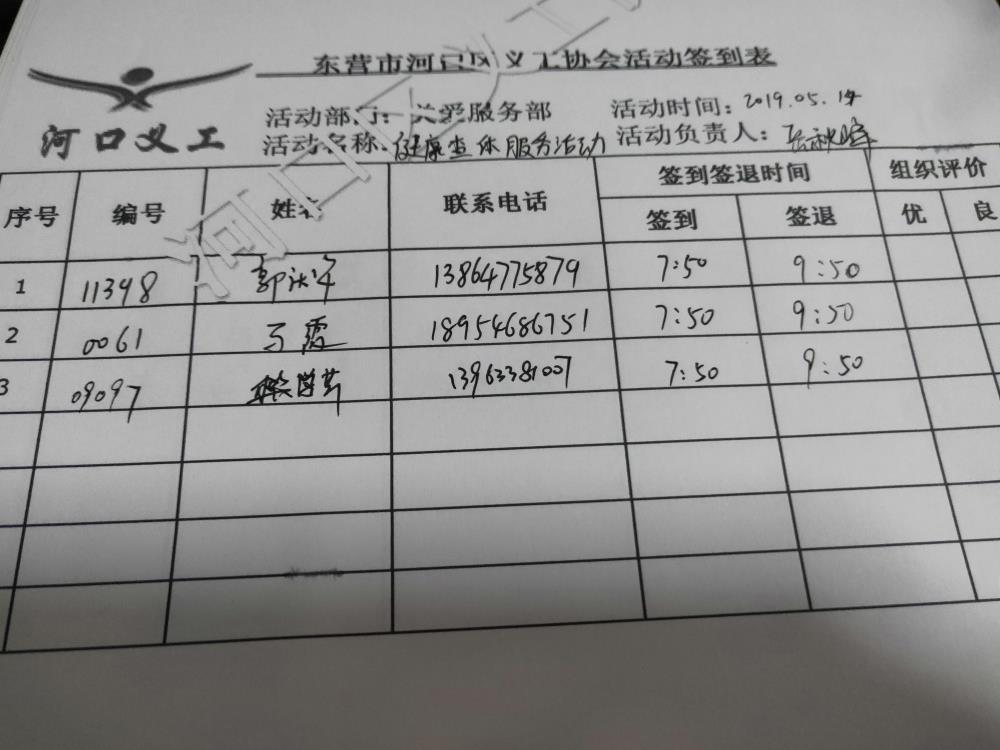 东营市河口区义工协会活动签到表
河口义工
活动部门：关爱服务部 活动时间：2019.05.14
活动名称：健康查体服务活动 活动负责人：张秋峰
序号 编号 姓名 联系电话 签到签退时间 组织评价
签到 签退 优 良
1 11348 13864775879 7:50 9:50
2 0061 马霞 18954686751 7:50 9:50
3 09097 13963381007 7:50 9:50
河口义工